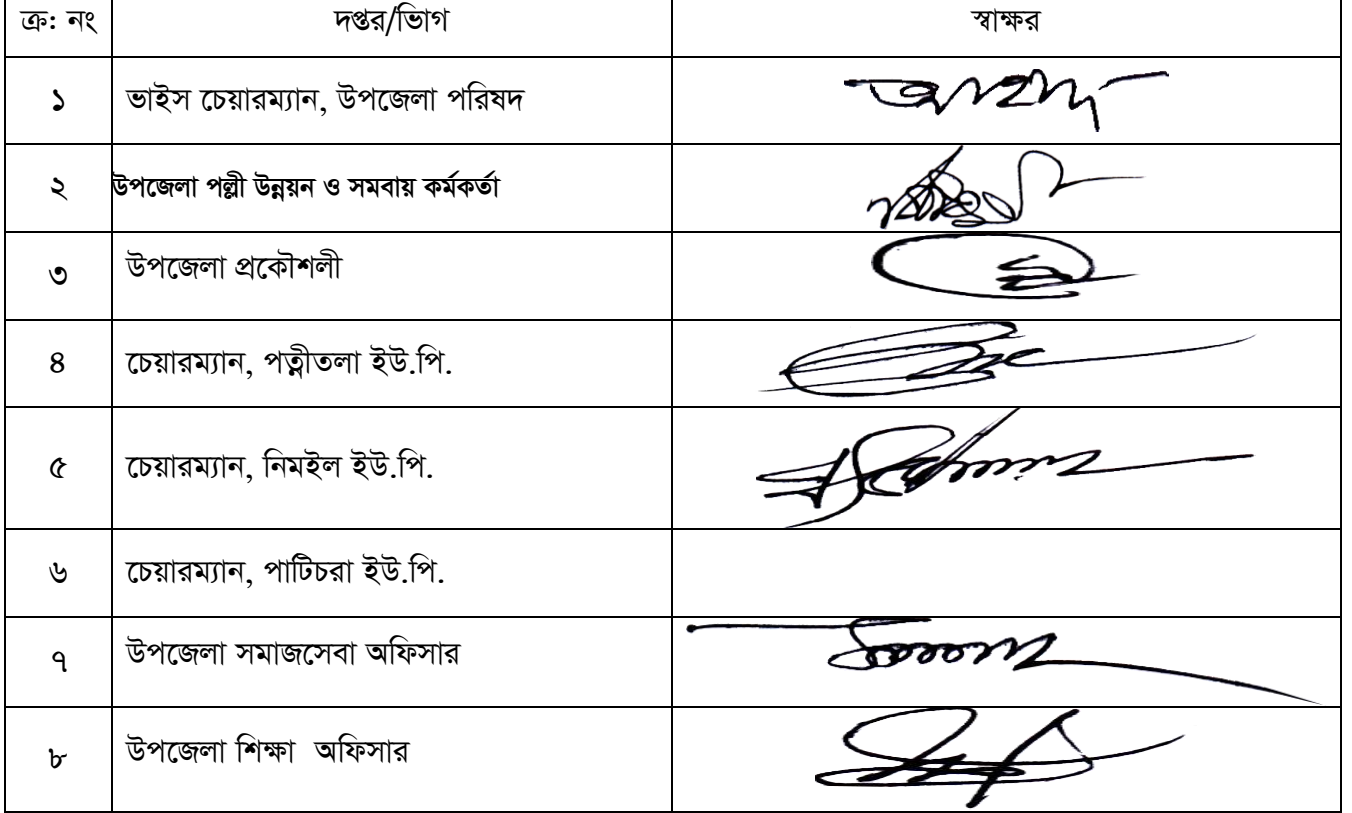 ক্র: নং দপ্তর/ভিাগ স্বাক্ষর
১ ভাইস চেয়ারম্যান, উপজেলা পরিষদ
২ উপজেলা পল্লী উন্নয়ন ও সমবায় কর্মকর্তা
৩ উপজেলা প্রকৌশলী
৪ চেয়ারম্যান, পত্নীতলা ইউ.পি.
৫ চেয়ারম্যান, নিমইল ইউ.পি.
৬ চেয়ারম্যান, পাটিচরা ইউ.পি.
৭ উপজেলা সমাজসেবা অফিসার
৮ উপজেলা শিক্ষা অফিসার